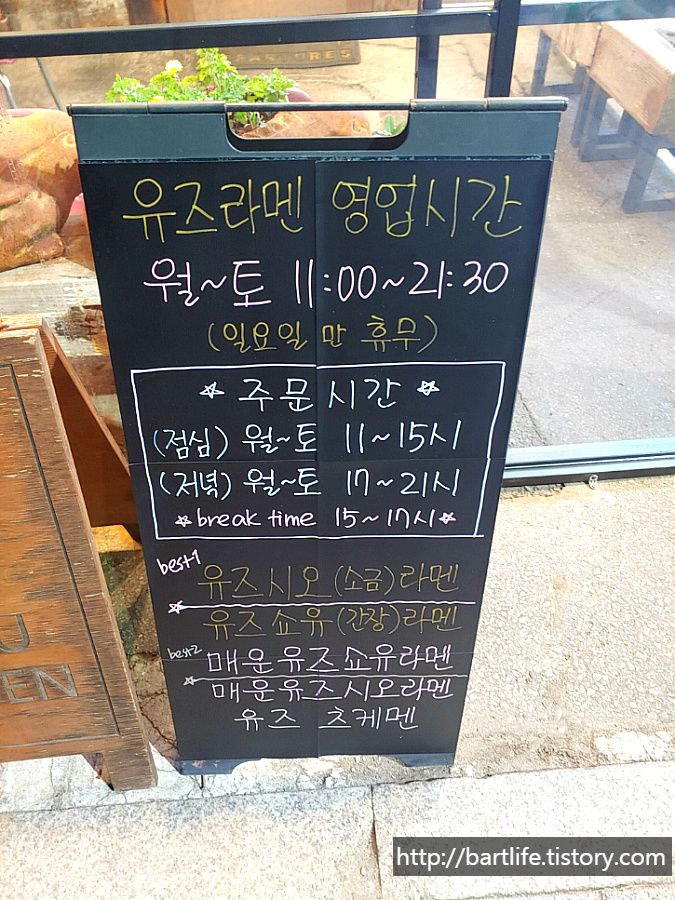 ORES
유즈라멘 영업시간
월~토 11:00~21:30
(일요일 만 휴무)
☆ 주문시간 ☆
(점심) 월~토 11~15시
(저녁) 월~토 17~21시
☆break time 15~17시☆
best1
유즈시오(소금)라멘
유즈쇼유(간장)라멘
best2
매운유즈쇼유라멘
매운유즈시오라멘
유즈 츠케멘
U
EN
http://bartlife.tistory.com